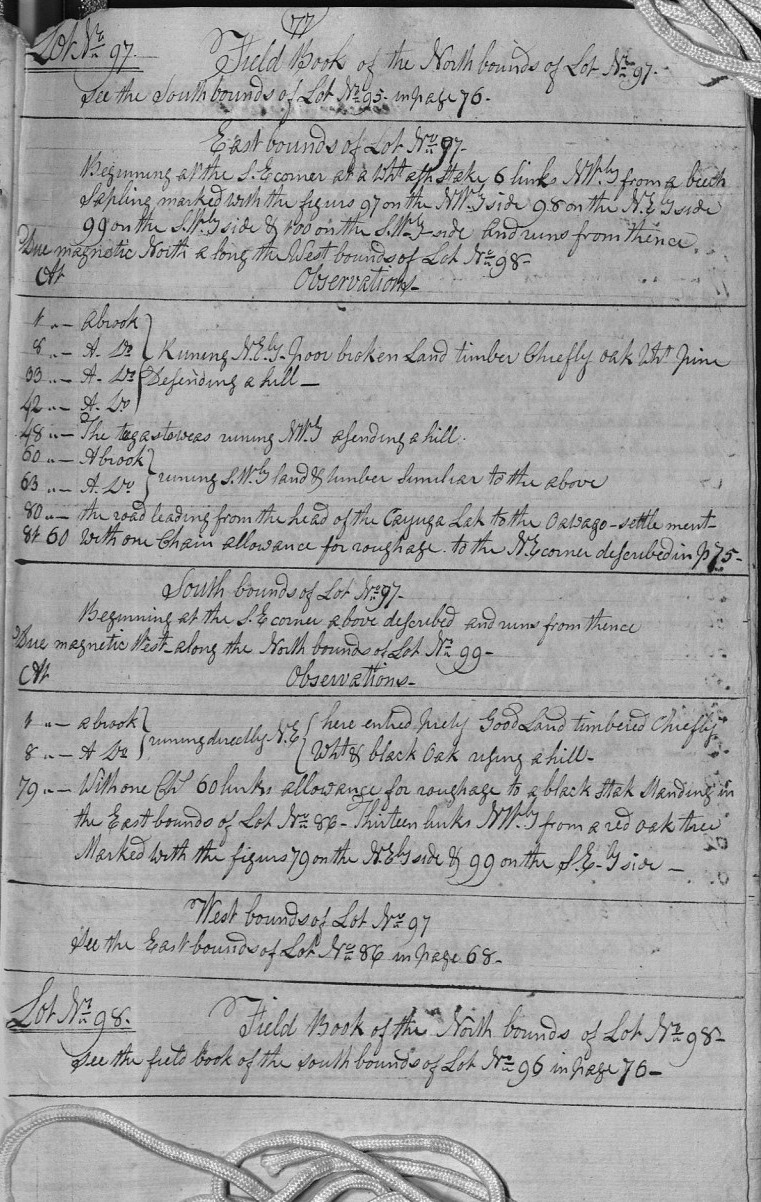 77
Lot No. 97. Field Book of the North bounds of Lot No. 97.
See the South bounds of Lot No. 95 in page 76-
East bounds of Lot No. 97-
Beginning at the S.E corner at a Wht ash stake 6 links NW.ly from a beech
Sapling marked with the figurs 97 on the NW.ly side 98 on the N.E.ly side
99 on the S.W.ly side & 100 on the S.W.ly side and runs from thence
Due magnetic North along the West bounds of Lot No. 98-
At Observations-
1 „ — a brook
8 „ — A. Do Runing N.E.ly-poor broken Land timber Chiefly oak Wht pine
33 „ — A. Do Desending a hill —
42 „ — A. Do
48 „ — The runing NW.ly asending a hill.
60 „ — A brook
63 „ — A. Do runing S.W.ly land & timber simuliar to the above
80 „ — the road leading from the head of the Cayuga Lak to the Oawago-settlement-
84 60 With one Chain allowance for roughage to the N.E corner described in P 75-
South bounds of Lot No. 97-
Beginning at the S.E corner above described and runs from thence
Due magnetic West along the North bounds of Lot No. 99-
At Observations-
1 „ — a brook here entred prety Good Land timbered Chiefly
8 „ — A Do runing directly N.E Wht & black Oak rising a hill-
79 „ — With one Ch. 60 links allowance for roughage to a black stak Standing in
the East bounds of Lot No. 86- Thirteen links NW.ly from a red oak tree
Marked with the figurs 79 on the N.E.ly side & 99 on the S.E-ly side —
West bounds of Lot No. 97
See the East bounds of Lot No. 86 in page 68-
Lot No. 98- Field Book of the North bounds of Lot No. 98-
See the field book of the south bounds of Lot No. 96 in page 76-